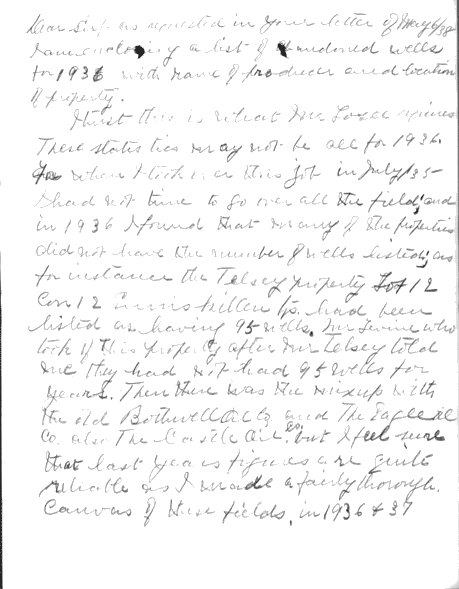 Dear Sir:- as requested in your letter of May 6/38
I am enclosing a list of abandoned wells
for 1936 with name of producer and location
of property.
I trust this is what Mr requires
These statistics may not be all for 1936.
when I took over this job in July/35-
I had not time to go over all the field; and
in 1936 I found that many of the properties
did not have the number of wells listed; as
for instance the Telsey property Lot 12
Con 12 Enniskillen Tp. had been
listed as having 95 wells. Mr Levine who
took of this property after Mr Telsey told
me they had not had 95 wells for
years. Then there was the mixup with
the old Bothwell Oil Co and The Eagle Oil
Co. also The Castle Oil Co. but I feel sure
that last years figures are quite
reliable as I made a fairly thorough.
Canvas of these fields, in 1936 & 37